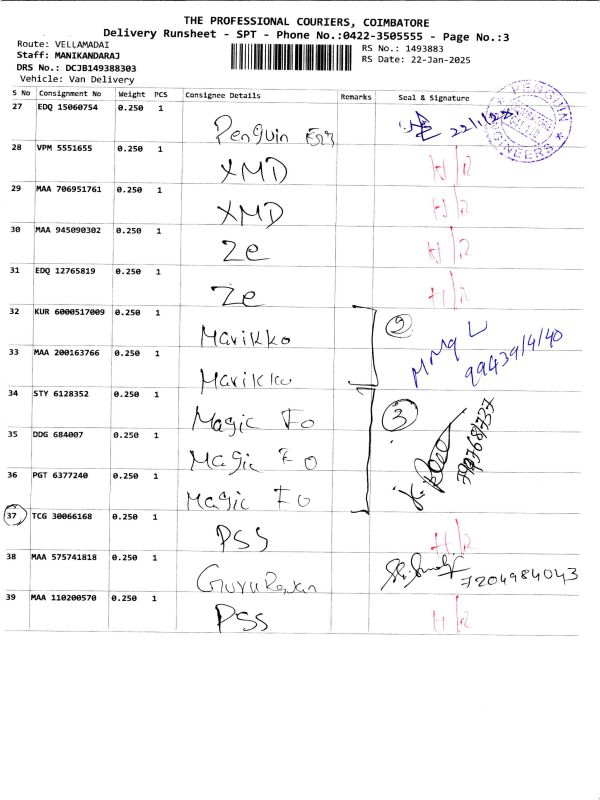 THE PROFESSIONAL COURIERS, COIMBATORE
Delivery Runsheet - SPT - Phone No.:0422-3505555 - Page No.:3
Route: VELLAMADAI
Staff: MANIKANDARAJ
DRS No.: DCJB149388303
Vehicle: Van Delivery
RS No.: 1493883
RS Date: 22-Jan-2025
S No Consignment No Weight PCS Consignee Details Remarks Seal & Signature
27 EDQ 15060754 0.250 1 Penguin 22/1/25
PENGUIN ENGINEERS
28 VPM 5551655 0.250 1 XMD H/R
29 MAA 706951761 0.250 1 XMD H/R
30 MAA 945090302 0.250 1 Ze H/R
31 EDQ 12765819 0.250 1 Ze H/R
32 KUR 6000517009 0.250 1 Marikko 2
33 MAA 200163766 0.250 1 Marikko
34 STY 6128352 0.250 1 Magic Fo 3
35 DDG 684007 0.250 1 Magic Fo
36 PGT 6377240 0.250 1 Magic Fo
37 TCG 30066168 0.250 1 PSS H/R
38 MAA 575741818 0.250 1 7204984043
39 MAA 110200570 0.250 1 PSS H/R